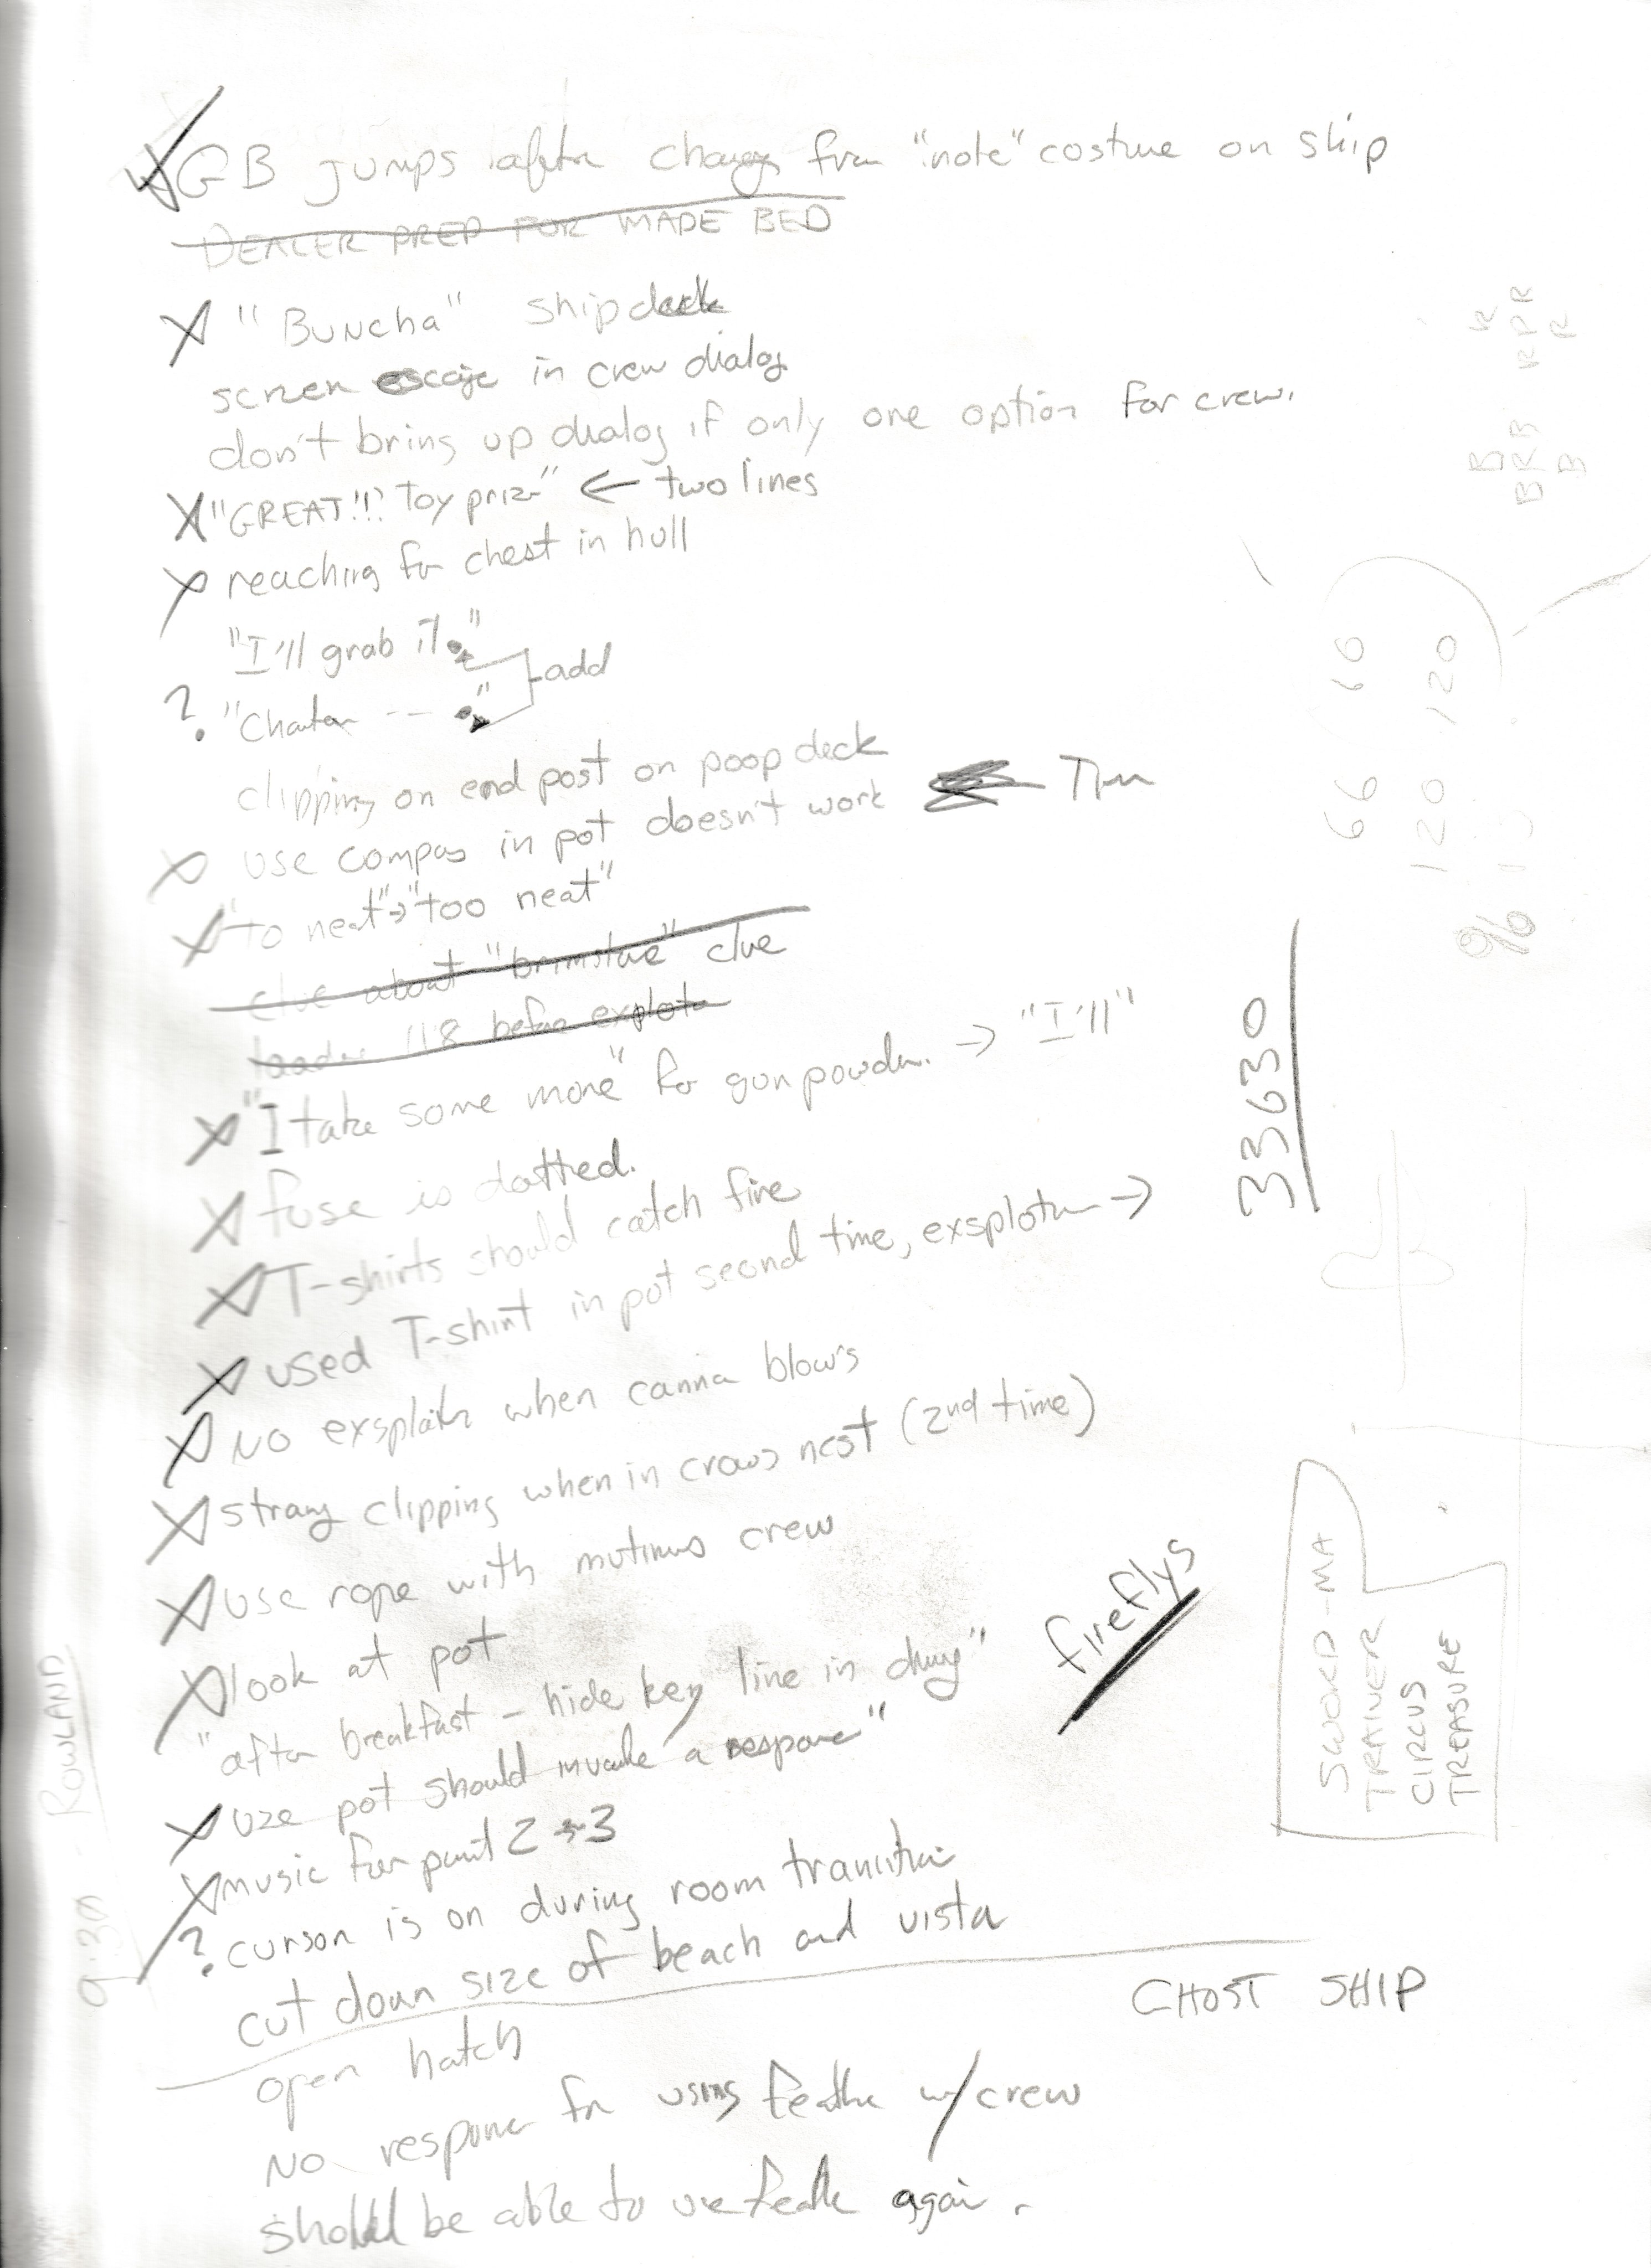 GB jumps after change from "note" costume on ship
DEALER PREP FOR MADE BED
X "Buncha" ship deck
screen escape in crew dialog
don't bring up dialog if only one option for crew.
X "GREAT!!! Toy prize" ← two lines
X reaching for chest in hull
"I'll grab it."
add
? "Chester -- ."
clipping on end post on poop deck
X use compas in pot doesn't work
X "to neat" → "too neat"
clue about "brimstone" clue
118 before
X "I take some more" for gun powder. → "I'll"
X fuse is dotted.
X T-shirts should catch fire
X used T-shirt in pot second time, exsplotin →
33630
X NO exsplotin when cannon blows
X strang clipping when in crows nest (2nd time)
X use rope with mutinus crew
X look at pot
"after breakfast - hide key line in"
fireflys
X use pot should invoke a response"
X music for part 2 → 3
? curson is on during room transition
cut down size of beach and vista
GHOST SHIP
open hatch
NO response for using feather w/crew
should be able to use feather again.
ROWLAND
9:30
R
RPR
R
B
BRB
B
66 / 60
120 120
%
SWORD-MA
TRAINER
CIRCUS
TREASURE